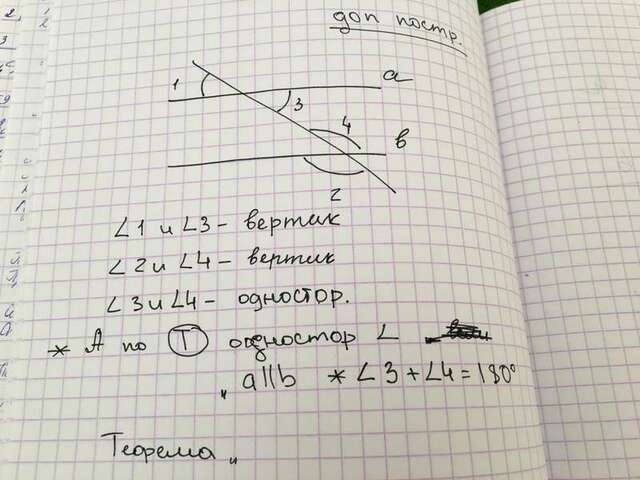 доп постр.
1
а
3
4
в
2
∠1 и ∠3 - вертик
∠2 и ∠4 - вертик
∠3 и ∠4 - одностор.
* А по Т одностор ∠
" a||b * ∠3 + ∠4 = 180°
Теорема "